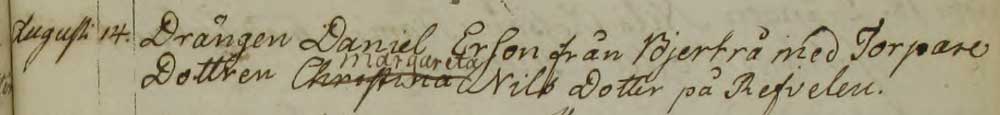 Augusti 14. Drängen Daniel Erson från Bjertrå med Torpare
Margareta
Dottren Christina Nils Dotter på Refvelen.